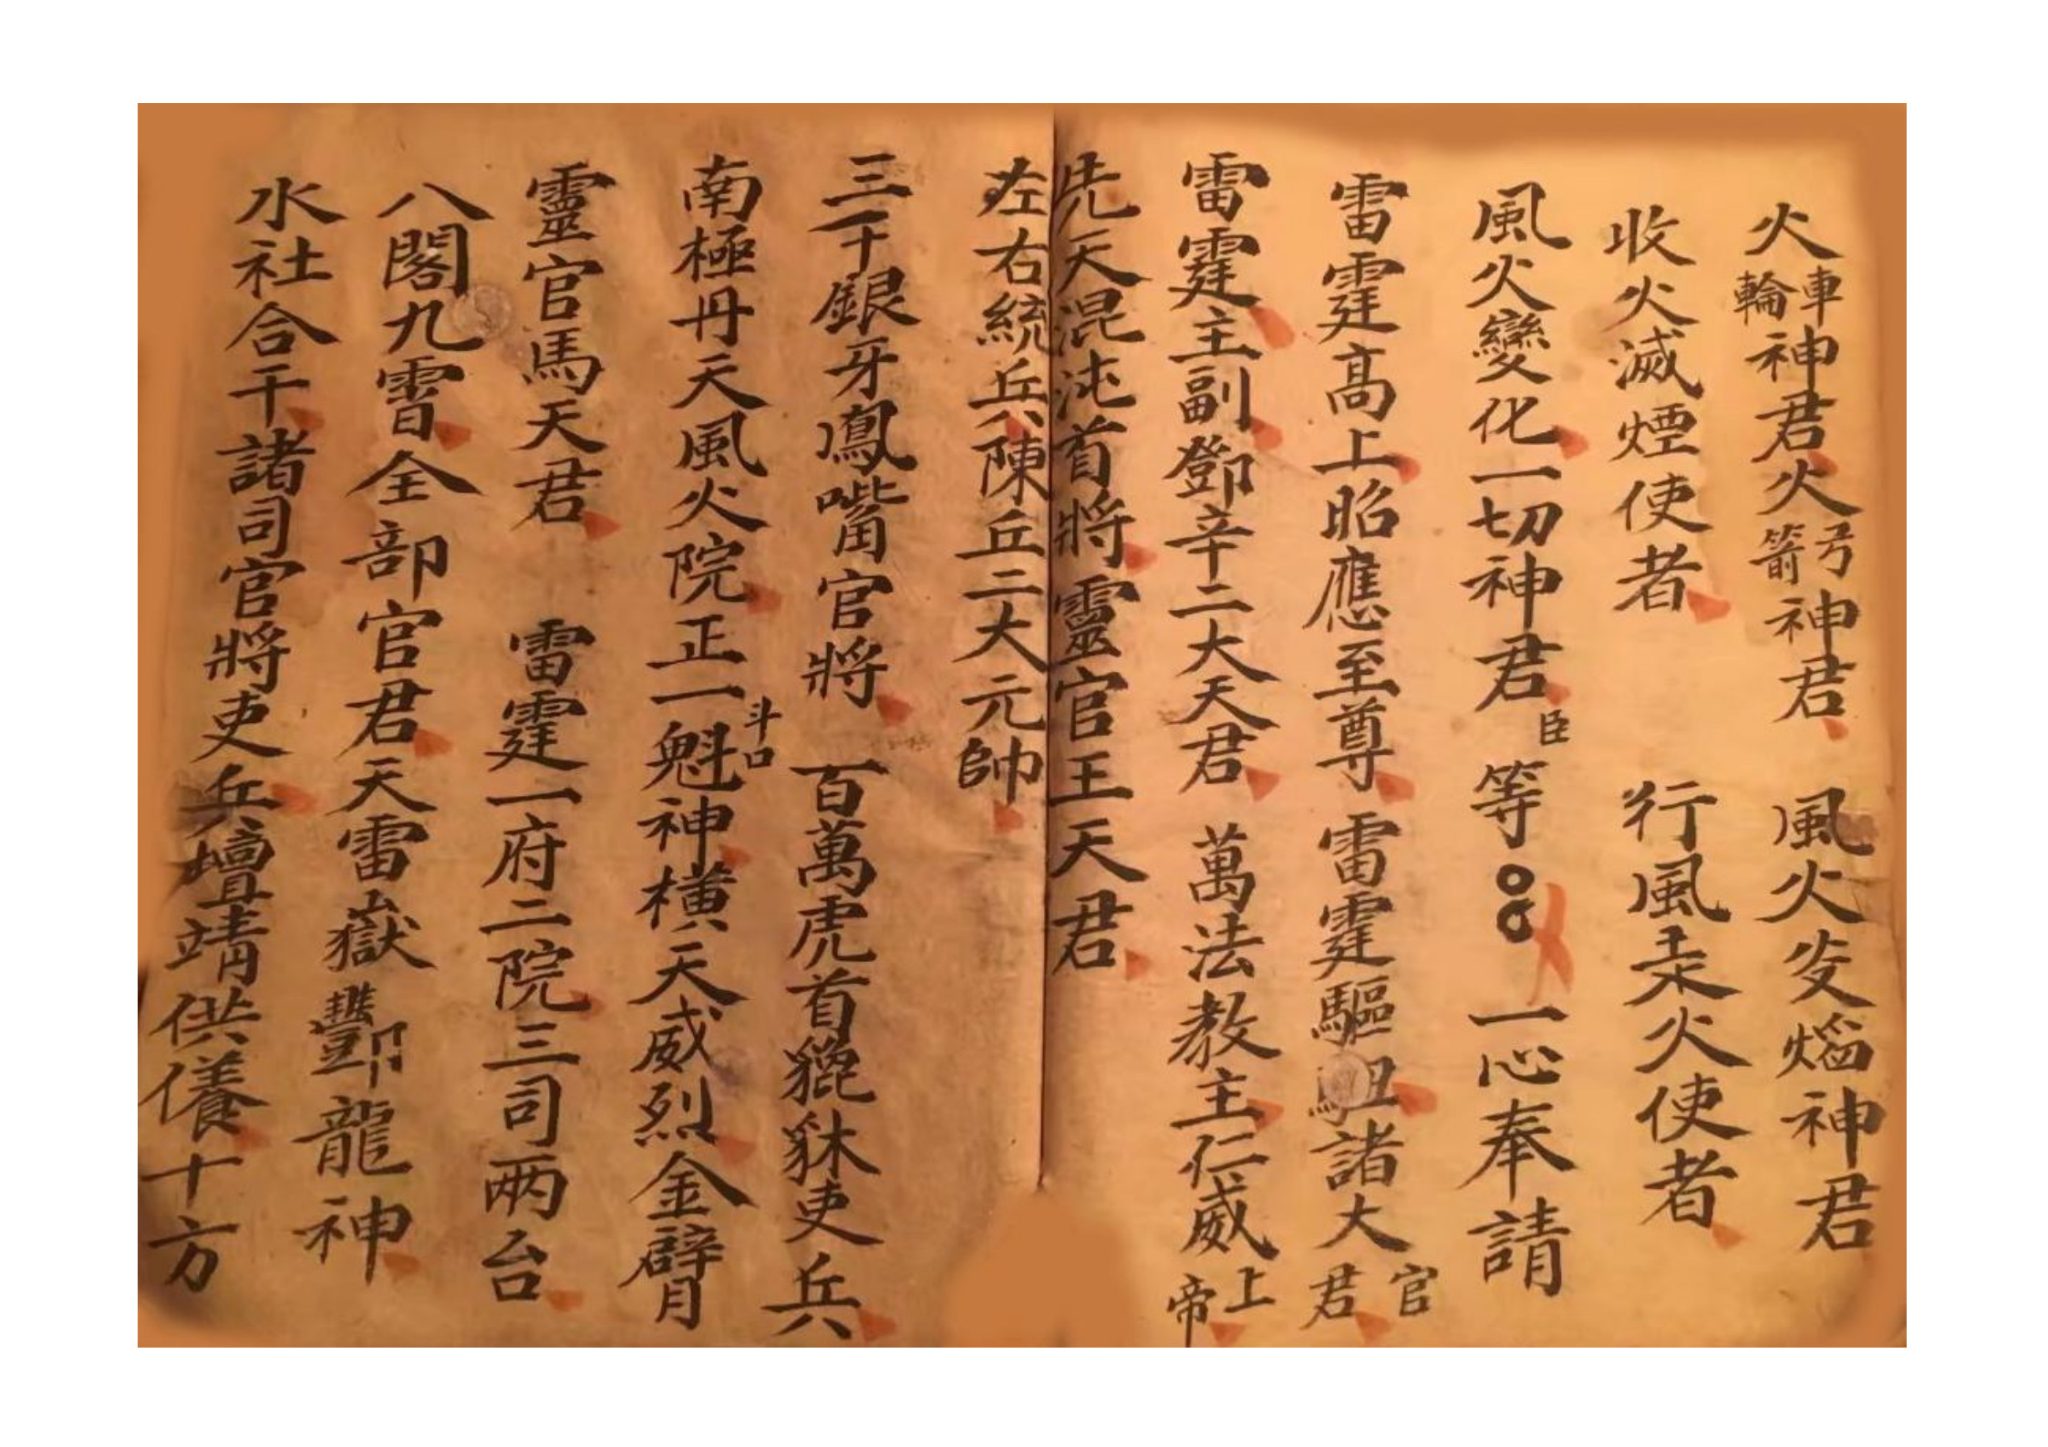 火車輪神君火弓箭神君 風火炎熖神君
收火滅煙使者 行風走火使者
風火變化一切神君臣等 一心奉請
雷霆高上昭應至尊 雷霆驅 諸大官君
雷霆主副鄧辛二大天君 萬法教主仁威上帝
先天混沌首將靈官王天君
左右統兵陳丘二大元帥
三千銀牙鳳嘴官將 百萬虎首貔貅吏兵
南極丹天風火院正一斗口魁神橫天威烈金臂
靈官馬天君 雷霆一府二院三司兩台
八閣九霄全部官君天雷嶽酆龍神
水社合干諸司官將吏兵壇靖供養十方